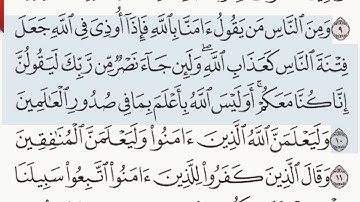 ٩ وَمِنَ ٱلنَّاسِ مَن يَقُولُ ءَامَنَّا بِٱللَّهِ فَإِذَآ أُوذِىَ فِى ٱللَّهِ جَعَلَ
فِتْنَةَ ٱلنَّاسِ كَعَذَابِ ٱللَّهِۖ وَلَئِن جَآءَ نَصْرٌ مِّن رَّبِّكَ لَيَقُولُنَّ
إِنَّا كُنَّا مَعَكُمْۚ أَوَلَيْسَ ٱللَّهُ بِأَعْلَمَ بِمَا فِى صُدُورِ ٱلْعَٰلَمِينَ
١٠ وَلَيَعْلَمَنَّ ٱللَّهُ ٱلَّذِينَ ءَامَنُوا۟ وَلَيَعْلَمَنَّ ٱلْمُنَٰفِقِينَ
١١ وَقَالَ ٱلَّذِينَ كَفَرُوا۟ لِلَّذِينَ ءَامَنُوا۟ ٱتَّبِعُوا۟ سَبِيلَنَا